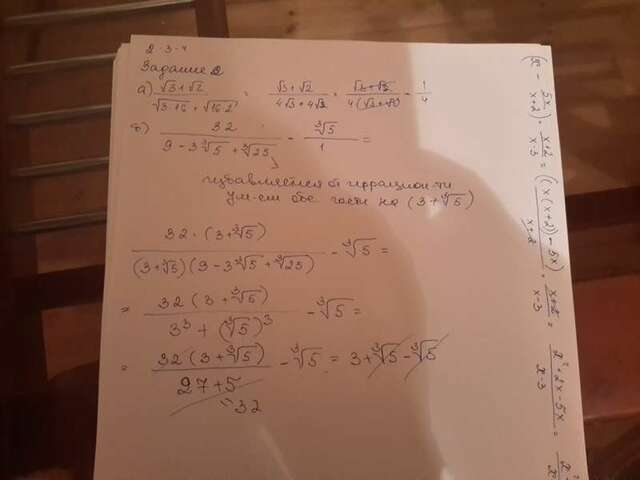 2·3·4
Задание 2
а) (√3+√2)/(√3·16 + √16·2) = (√3+√2)/(4√3+4√2) = (√3+√2)/(4(√3+√2)) = 1/4
б) 32/(9-3∛5+∛25) - ∛5/1 =
избавляемся от иррацион-ти
ум-ем обе части на (3+∛5)
32·(3+∛5)/((3+∛5)(9-3∛5+∛25)) - ∛5 =
= 32(3+∛5)/(3³+(∛5)³) - ∛5 =
= 32(3+∛5)/(27+5) - ∛5 = 3+∛5-∛5
=32
(x - 5x/(x+2)) · (x+2)/(x-3) = ((x(x+2))-5x)/(x+2) · (x+2)/(x-3) = (x²+2x-5x)/(x-3) =